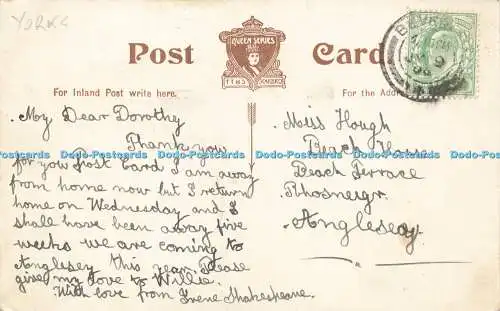 Y32K6
Post Card
QUEEN SERIES
For Inland Post write here.
For the Address
My Dear Dorothy
Thank you
for you Post Card I am away
from home now but I return
home on Wednesday and I
shall have been away five
weeks we are coming to
Anglesey this year. Please
give my love to Willie.
With love from Irene Shakespeare
Miss Hough
Beach House
Beach Terrace
Rhosneigr
Anglesey
Data-Postcards Data-Postcards Data-Postcards Data-Postcards